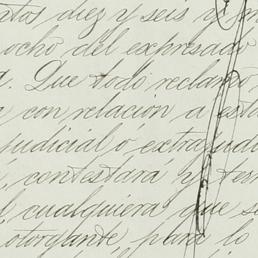 diez y seis y
ocho del expresado
Que todo reclamo
con relacion a esta
judicial ó extrajudi
contestará y ter
cualquiera que se
otorgante, para lo